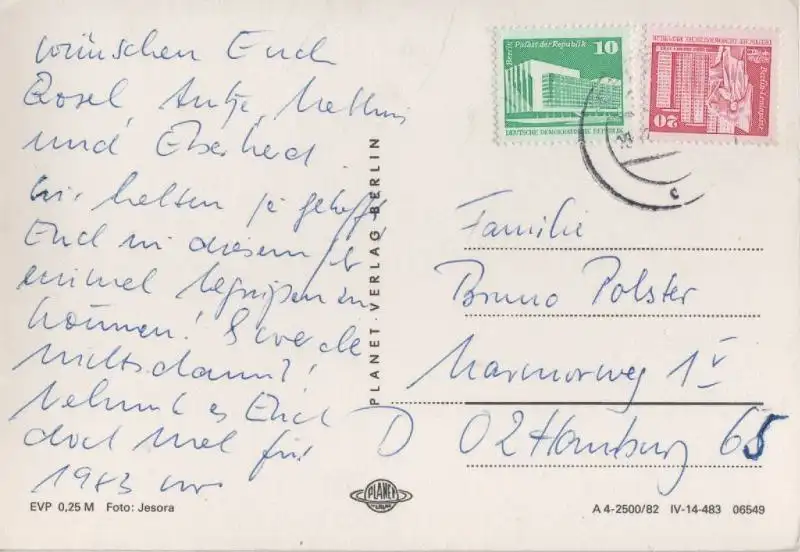 wünschen Euch
Rosel, Antje, Mathias
und Eberhard.
Wir hatten ja gehofft
Euch in diesem Jahr
einmal begrüßen zu
können! Es wurde
nichts daraus!
Nehmt es Euch
doch mal für
1983 vor
EVP 0,25 M Foto: Jesora
PLANET-VERLAG BERLIN
PLANET
BERLIN
Berlin Palast der Republik 10
DEUTSCHE DEMOKRATISCHE REPUBLIK
Berlin-Leninplatz 20
DEUTSCHE DEMOKRATISCHE REPUBLIK
c
Familie
Bruno Polster
Marmorweg 1
D 02 Hamburg 65
A 4-2500/82 IV-14-483 06549